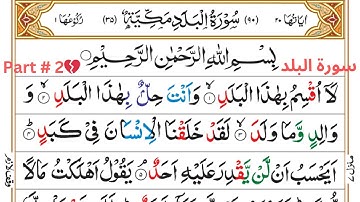 اٰيَاتُهَا ٢٠ (٩٠) سُوْرَةُ الْبَلَدِ مَكِّيَّةٌ (٣٥) رُكُوْعُهَا ١
Part # 2💔 بِسْمِ اللّٰهِ الرَّحْمٰنِ الرَّحِيْمِ سورة البلد
لَاۤ اُقْسِمُ بِهٰذَا الْبَلَدِ ۙ۝١ وَاَنْتَ حِلٌّۢ بِهٰذَا الْبَلَدِ ۙ۝٢ وَ
وَالِدٍ وَّمَا وَلَدَ ۙ۝٣ لَقَدْ خَلَقْنَا الْاِنْسَانَ فِيْ كَبَدٍ ؕ۝٤
اَيَحْسَبُ اَنْ لَّنْ يَّقْدِرَ عَلَيْهِ اَحَدٌ ۘ۝٥ يَقُوْلُ اَهْلَكْتُ مَالًا